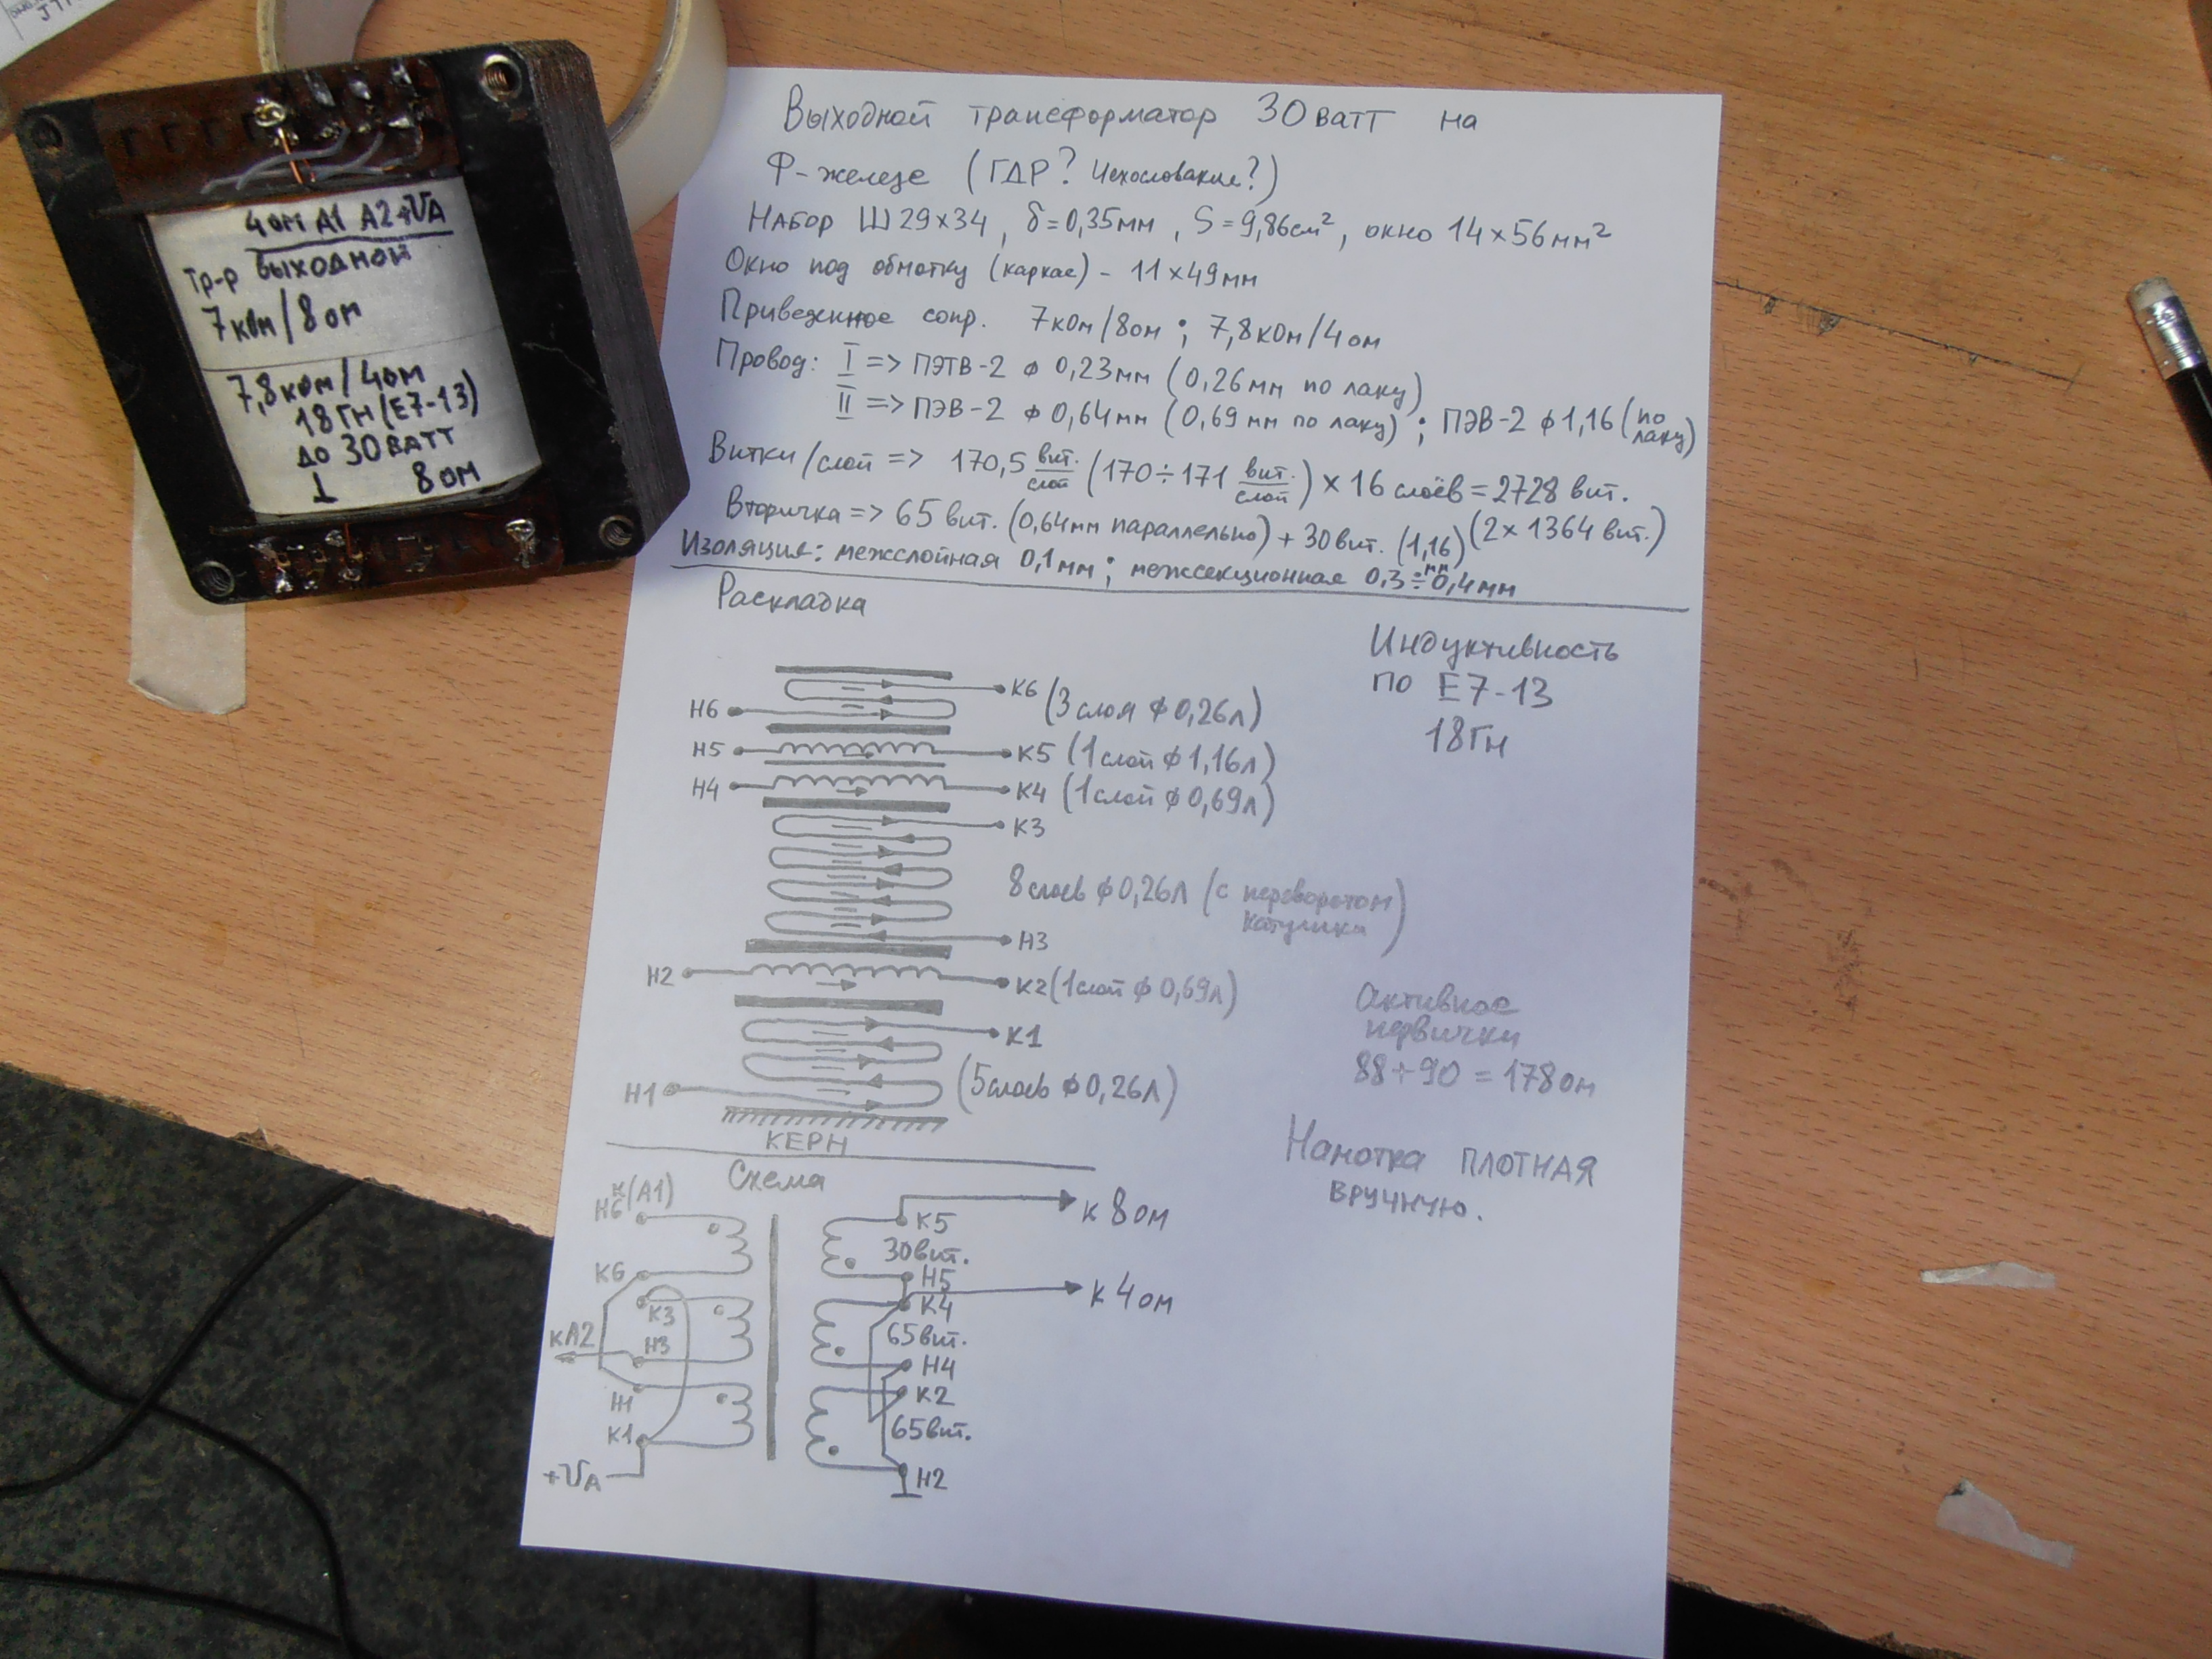 4 ом А1 А2 +UА
Тр-р выходной
7 ком/8 ом
7,8 ком/4 ом
18 Гн (Е7-13)
до 30 ватт
⊥ 8 ом
Выходной трансформатор 30 ватт на
Ф-железе (ГДР? Чехословакия?)
Набор Ш 29×34, δ=0,35мм, S=9,86см², окно 14×56мм²
Окно под обмотку (каркас) - 11×49мм
Приведенное сопр. 7кОм/8ом; 7,8кОм/4ом
Провод: I => ПЭТВ-2 ϕ 0,23мм (0,26мм по лаку)
II => ПЭВ-2 ϕ 0,64мм (0,69мм по лаку); ПЭВ-2 ϕ1,16 (по лаку)
Витки/слой => 170,5 вит./слой (170÷171 вит./слой) × 16 слоёв = 2728 вит.
(2×1364 вит.)
Вторичка => 65 вит. (0,64мм параллельно) + 30 вит. (1,16 мм)
Изоляция: межслойная 0,1мм; межсекционная 0,3÷0,4мм
Раскладка
К6 (3 слоя ϕ0,26л)
Н6
Н5 К5 (1 слой ϕ1,16л)
Н4 К4 (1 слой ϕ0,69л)
К3
8 слоев ϕ0,26л (с переворотом катушки)
Н3
Н2 К2 (1 слой ϕ0,69л)
К1
Н1 (5 слоев ϕ0,26л)
КЕРН
Индуктивность
по Е7-13
18Гн
Активное
первички
88+90 = 178ом
Намотка ПЛОТНАЯ
вручную.
Схема
Н6 (А1)
К6
К3
кА2 Н3
Н1
К1
+UА
к 8ом
К5
30 вит.
Н5
к 4ом
К4
65 вит.
Н4
К2
65 вит.
Н2